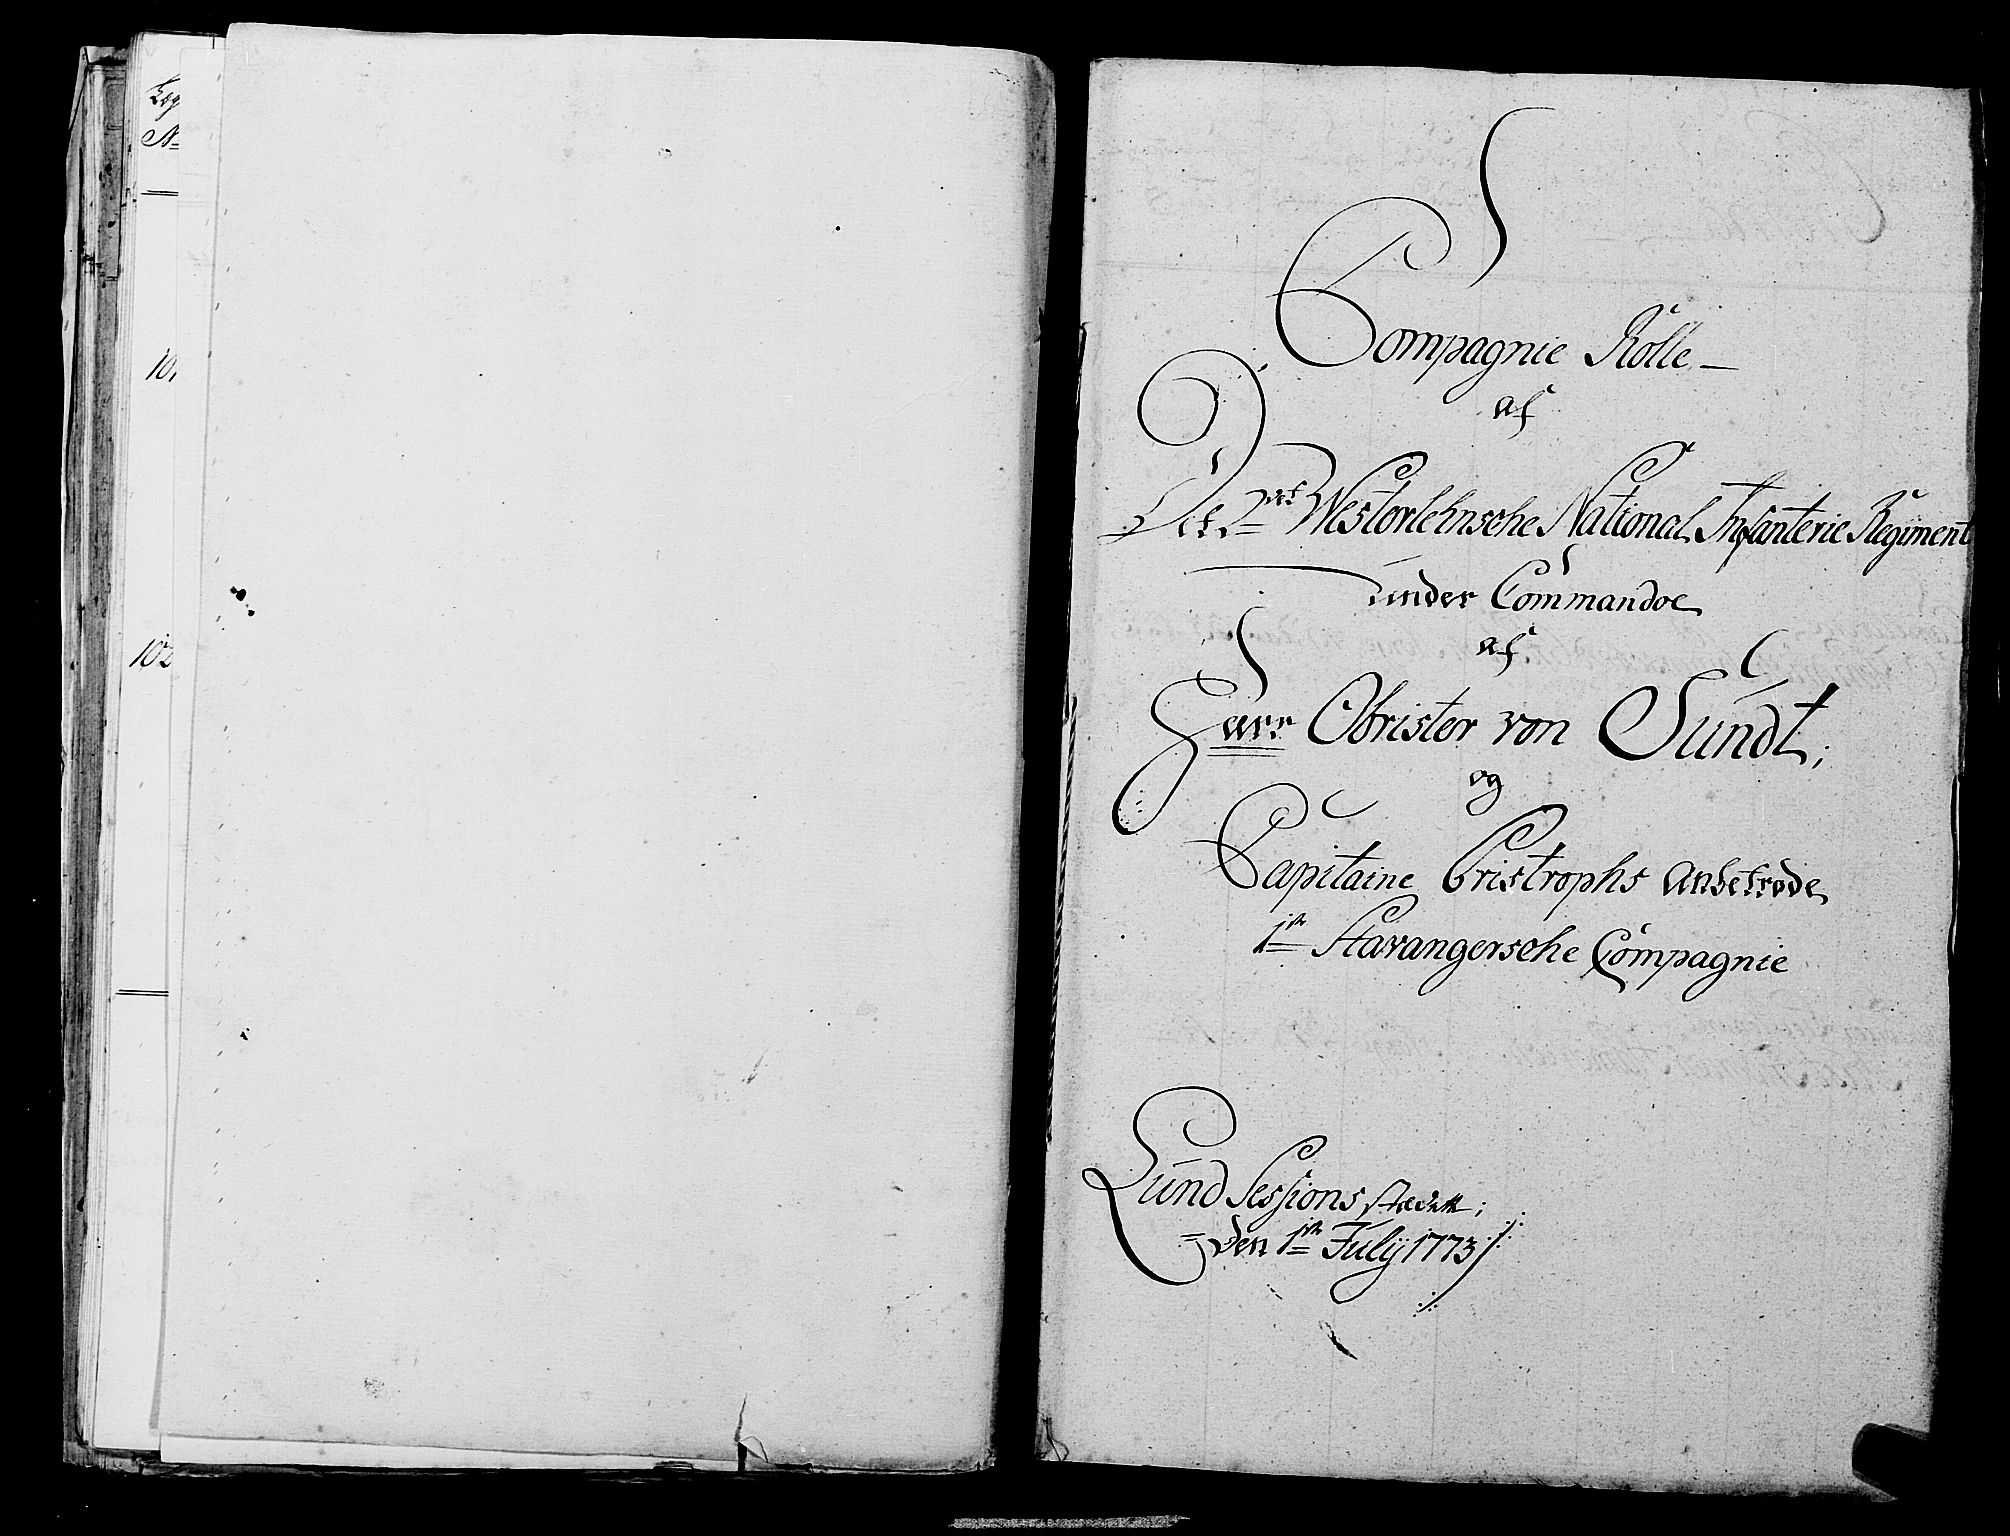 Læg
No
101
102
Compagnie Rolle
af
Det 2det Westerlehnsche National Infanterie Regiment
under Commandoe
af
Herr Obrister von Sundt;
og
Capitaine Cristrophs anbetrode
1ste Stavangersche Compagnie
Lund Sessions stædett;
den 1ste July 1773